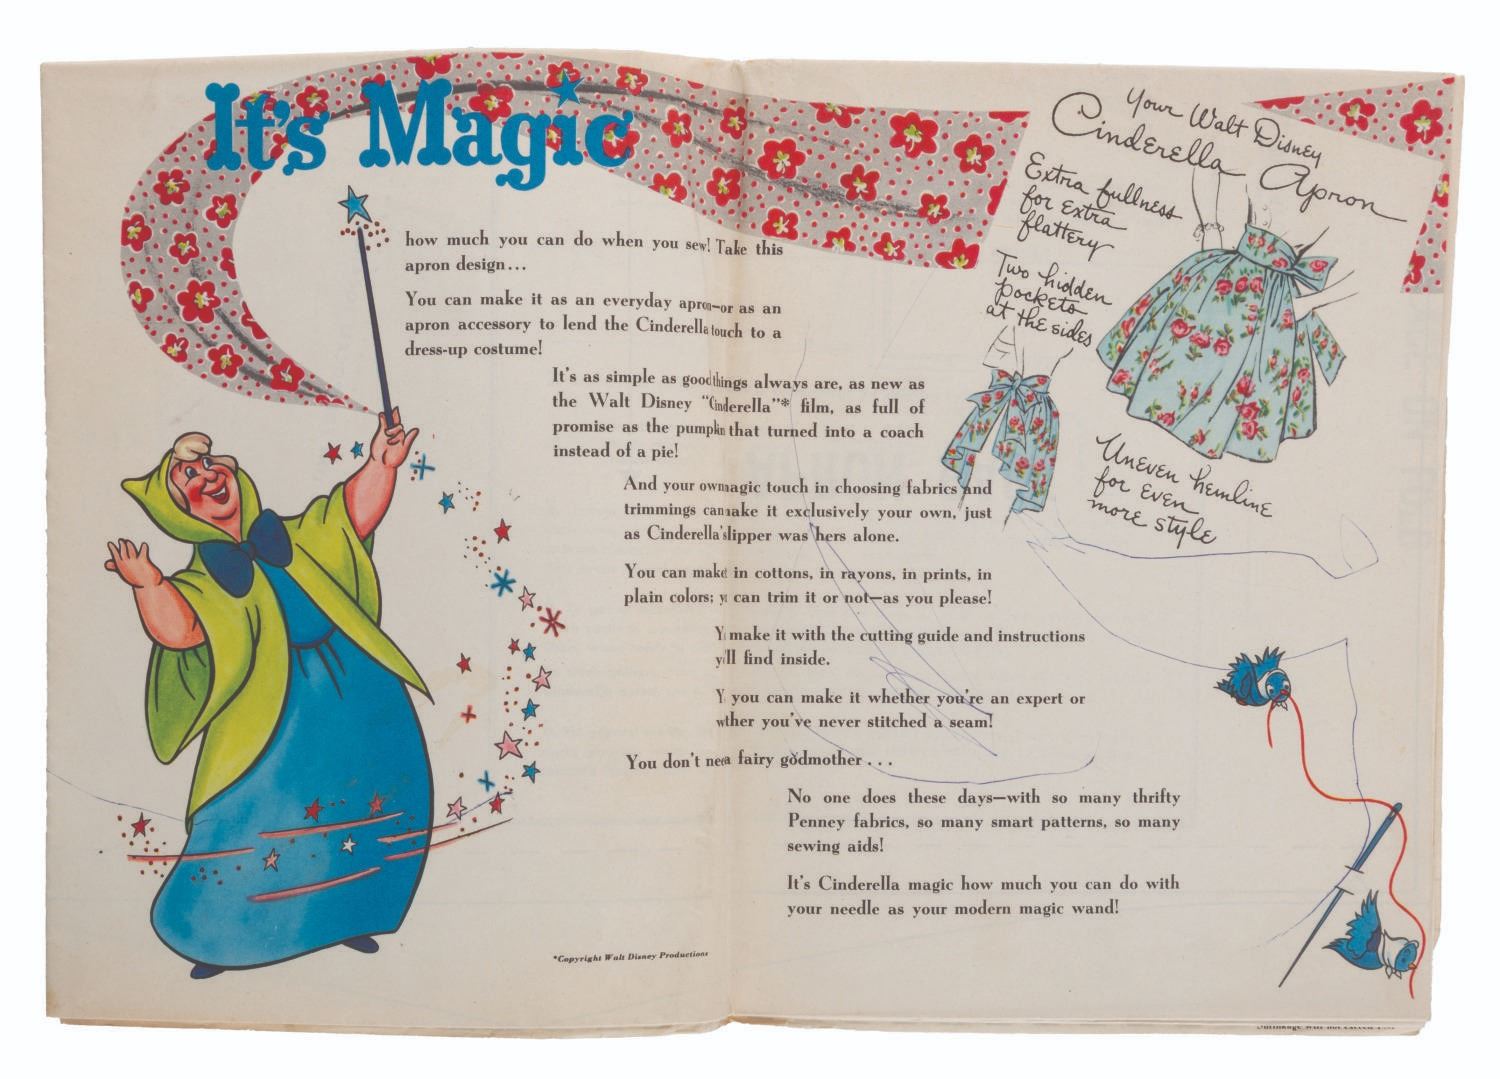 It's Magic
how much you can do when you sew! Take this
apron design...
You can make it as an everyday apron—or as an
apron accessory to lend the Cinderella touch to a
dress-up costume!
It's as simple as good things always are, as new as
the Walt Disney "Cinderella"* film, as full of
promise as the pumpkin that turned into a coach
instead of a pie!
And your own magic touch in choosing fabrics and
trimmings can make it exclusively your own, just
as Cinderella's slipper was hers alone.
You can make in cottons, in rayons, in prints, in
plain colors; y can trim it or not—as you please!
Y make it with the cutting guide and instructions
y'll find inside.
Y you can make it whether you're an expert or
wther you've never stitched a seam!
You don't need a fairy godmother . . .
No one does these days—with so many thrifty
Penney fabrics, so many smart patterns, so many
sewing aids!
It's Cinderella magic how much you can do with
your needle as your modern magic wand!
*Copyright Walt Disney Productions
Your Walt Disney
Cinderella Apron
Extra fullness
for extra
flattery
Two hidden
pockets
at the sides
Uneven hemline
for even
more style